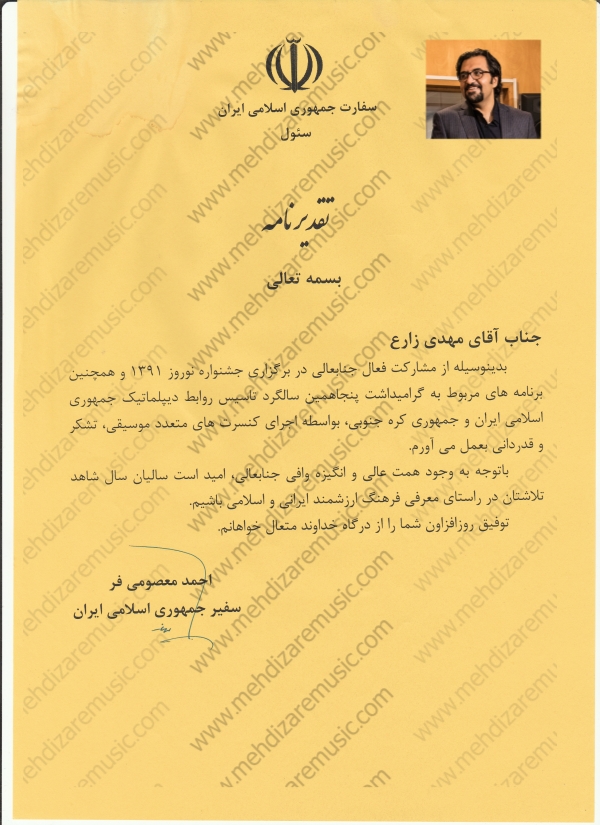 سفارت جمهوری اسلامی ایران
سئول
تقدیرنامه
بسمه تعالی
جناب آقای مهدی زارع
بدینوسیله از مشارکت فعال جنابعالی در برگزاری جشنواره نوروز ۱۳۹۱ و همچنین
برنامه های مربوط به گرامیداشت پنجاهمین سالگرد تاسیس روابط دیپلماتیک جمهوری
اسلامی ایران و جمهوری کره جنوبی، بواسطه اجرای کنسرت های متعدد موسیقی، تشکر
و قدردانی بعمل می آورم.
باتوجه به وجود همت عالی و انگیزه وافی جنابعالی، امید است سالیان سال شاهد
تلاشتان در راستای معرفی فرهنگ ارزشمند ایرانی و اسلامی باشیم.
توفیق روزافزاون شما را از درگاه خداوند متعال خواهانم.
احمد معصومی فر
سفیر جمهوری اسلامی ایران
www.mehdizaremusic.com